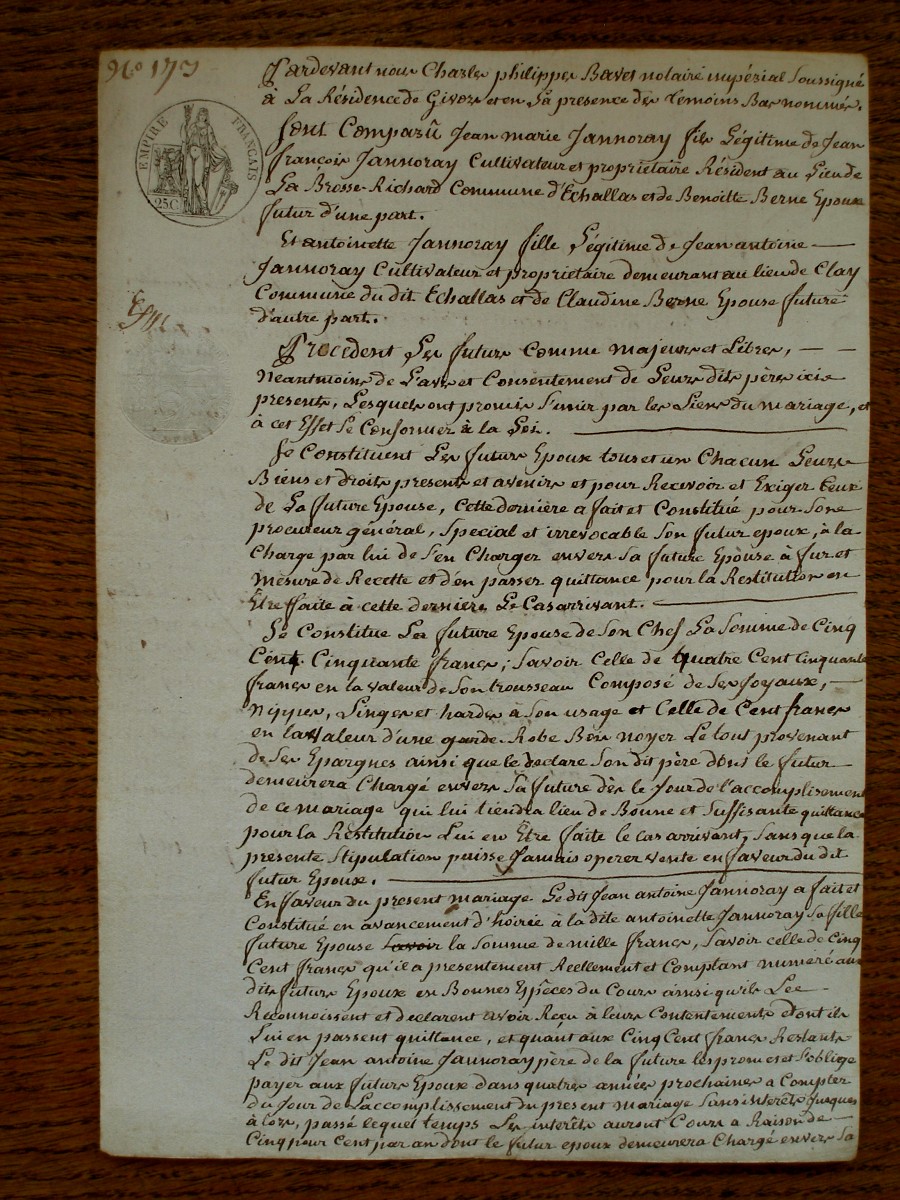 No 173
EMPIRE FRANÇAIS
25C
Pardevant nous Charles philippes Bavet notaire impérial Soussigné
à La Résidence de Givors et en Sa presence des temoins Bas nommés.
font Comparû Jean marie Jannoray fils Légitime de Jean
françois Jannoray Cultivateur et propriétaire Résident au Lieu de
La Brosse Richard Commune d'Echallas et de Benoitte Berne Epoux
futur d'une part.
Et antoinette Jannoray fille Légitime de Jean antoine
Jannoray Cultivateur et proprietaire demeurant au lieu de Clay
Commune du dit Echallas et de Claudine Berne Epouse future
d'autre part.
Procedent Les futurs Comme majeurs et Libres,
Neantmoins de L'avis et Consentement de Leurs dits pères ici
presents, Lesquels ont promis S'unir par les Liens du mariage, et
à cet Effet Se Conformer à la Loi.
Se Constituent Les futurs Epoux tous et un Chacun Leurs
Biens et droits presents et avenirs et pour Recevoir et Exiger Ceux
de La future Epouse, Cette derniere a fait et Constitué pour Son
procureur général, Special et irrevocable Son futur epoux, à la
Charge par lui de S'en Charger envers Sa future Epouse à fur et
Mesure de Recette et d'en passer quittance pour la Restitution en
Etre faite à cette derniere Le Cas arrivant.
Se Constitue La future Epouse de Son Chef La Somme de Cinq
Cent Cinquante francs; Savoir Celle de quatre Cent Cinquante
francs en la valeur de Son trousseau Composé de Ses Joyaux,
Nippes, Linges et hardes à Son usage et Celle de Cent francs
en la Valeur d'une garde Robe Bois noyer Le tout provenant
de Ses Epargnes ainsi que le declare Son dit père dont le futur
demeurera Chargé envers Sa future dès le Jour de l'accomplisement
de ce mariage qui lui tiendra lieu de Bonne et Suffisante quittance
pour la Restitution Lui en Etre faite le cas arrivant, Sans que la
présente Stipulation puisse Jamais operer vente en faveur du dit
futur Epoux.
En faveur du present mariage Le dit Jean antoine Jannoray a fait et
Constitué en avancement d'hoirie à la dite antoinette Jannoray Sa fille
future Epouse Savoir la Somme de mille francs, Savoir celle de Cinq
Cent francs qu'il a presentement Reellement et Comptant numéré aux
dits futurs Epoux en Bonnes Espèces du Cours ainsi qu'ils Le
Reconnoissent et declarent avoir Reçu à leurs Contentements dont ils
Lui en passent quittance, et quant aux Cinq Cent francs Restants
Le dit Jean antoine Jannoray père de la future les promet et S'oblige
payer aux futurs Epoux dans quatre années prochaines a Compter
du Jour de L'accomplissement du present mariage Sans interêts Jusques
à lors, passé lequel temps Les interêts auront Cours à Raison de
Cinq pour Cent par an dont le futur epoux demeurera Chargé envers Sa